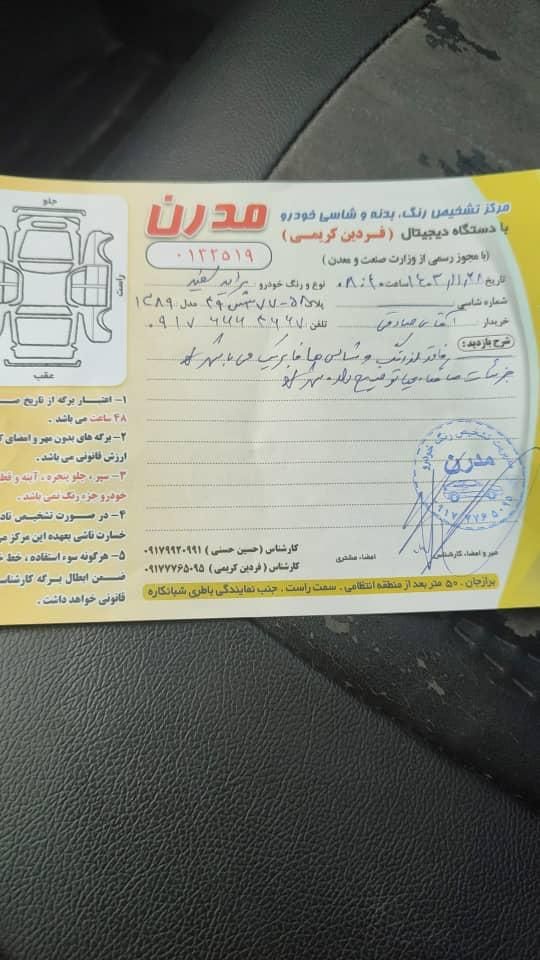 مرکز تشخیص رنگ، بدنه و شاسی خودرو
مدرن
با دستگاه دیجیتال (فردین کریمی)
(با مجوز رسمی از وزارت صنعت و معدن)
۰۱۳۲۵۱۹
تاریخ ۱۴۰۳/۱۱/۲۸ ساعت ۸:۴۰ نوع و رنگ خودرو: پراید سفید
شماره شاسی پلاک مدل ۱۳۸۹
خریدار آقای صادقی تلفن ۰۹۱۷
شرح بازدید:
فاقد رنگ و شاسی ها فابریک می باشد
جزئیات توضیح داده شد
جلو
راست
عقب
۱- اعتبار برگه از تاریخ
۴۸ ساعت می باشد.
۲- برگه های بدون مهر و امضای
ارزش قانونی می باشد.
۳- سپر، جلو پنجره، آینه و
خودرو جزء رنگ نمی باشد.
۴- در صورت تشخیص
خسارت ناشی بعهده این مرکز
۵- هرگونه سوء استفاده، خط
ضمن ابطال برگه
قانونی خواهد داشت.
مدرن
کارشناس (حسین حسنی) ۰۹۱۷۹۹۲۰۹۹۱
کارشناس (فردین کریمی) ۰۹۱۷۷۷۶۵۰۹۵
امضاء مشتری
مهر و امضاء کارشناس
برازجان. ۵۰ متر بعد از منطقه انتظامی. سمت راست. جنب نمایندگی باطری شبانکاره